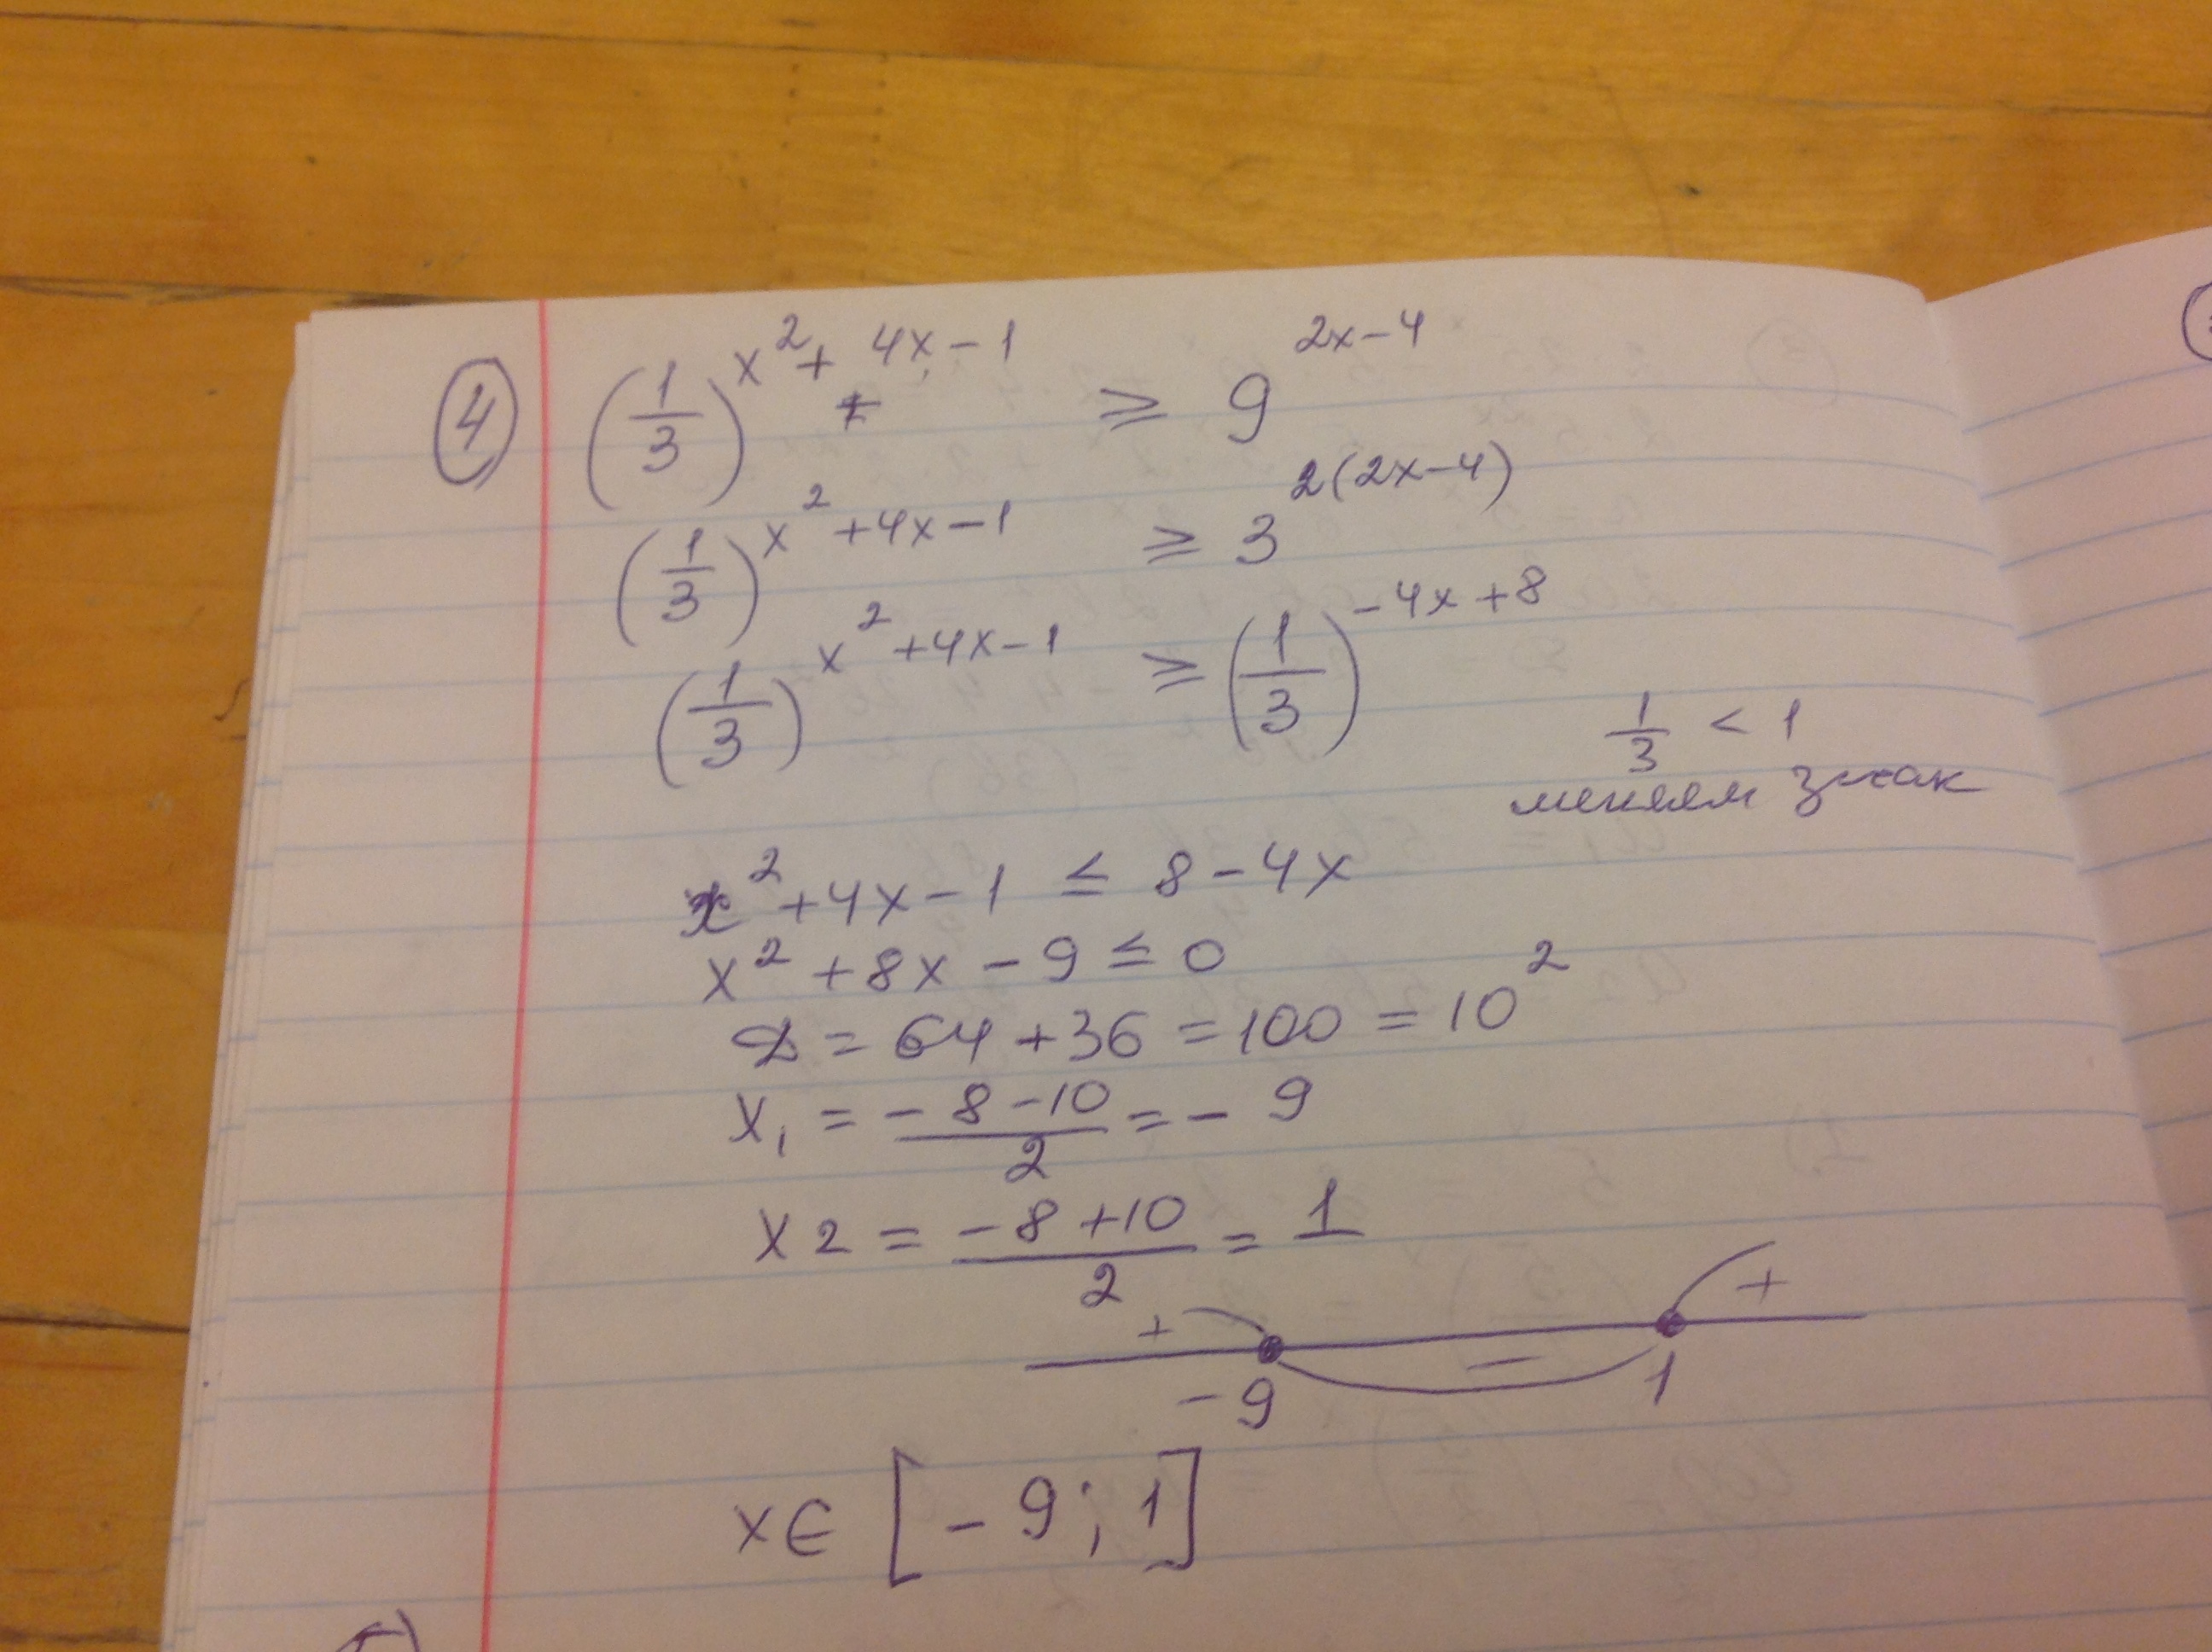 ④ (1/3)^(x²+4x-1) ≥ 9^(2x-4)
(1/3)^(x²+4x-1) ≥ 3^(2(2x-4))
(1/3)^(x²+4x-1) ≥ (1/3)^(-4x+8)
1/3 < 1
меняем знак
x²+4x-1 ≤ 8-4x
x²+8x-9 ≤ 0
D = 64+36 = 100 = 10²
x₁ = (-8-10)/2 = -9
x2 = (-8+10)/2 = 1
+ - +
-9 1
x∈ [-9; 1]